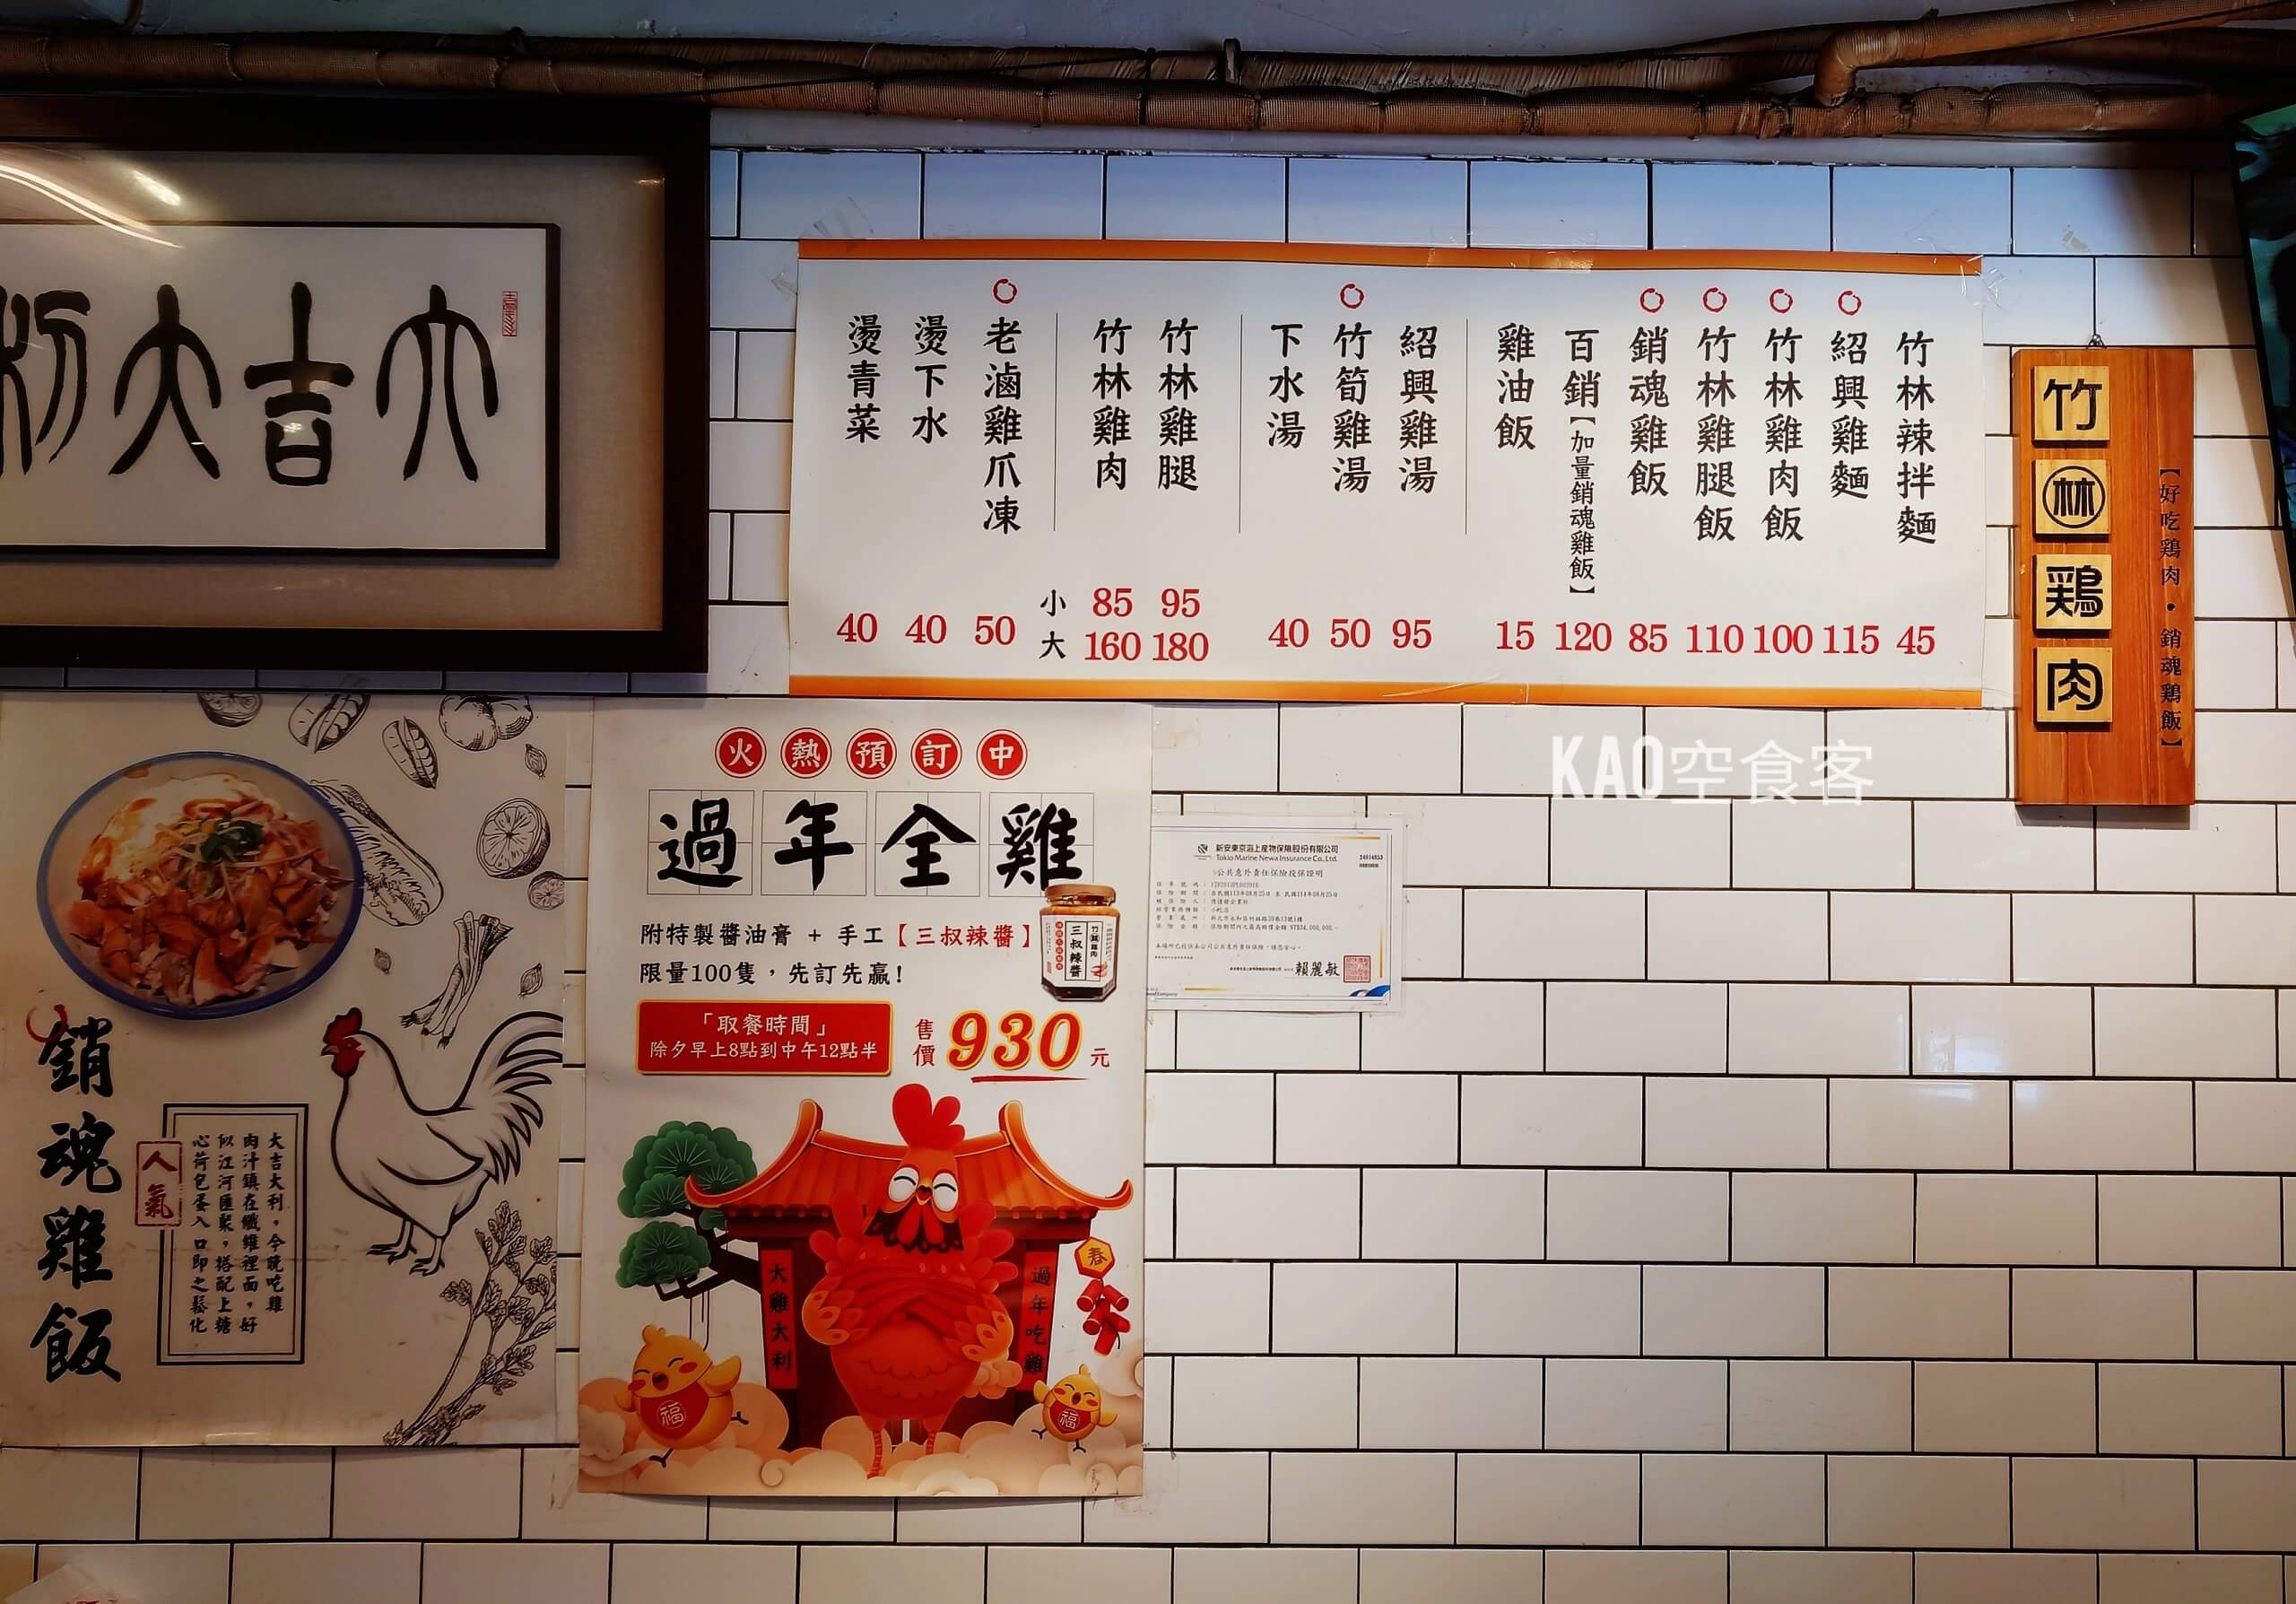 大吉大利
竹林辣拌麵 45
紹興雞麵 115
竹林雞肉飯 100
竹林雞腿飯 110
銷魂雞飯 85
百銷【加量銷魂雞飯】 120
雞油飯 15
紹興雞湯 95
竹筍雞湯 50
下水湯 40
竹林雞腿 小 95 大 180
竹林雞肉 小 85 大 160
老滷雞爪凍 50
燙下水 40
燙青菜 40
竹林鶏肉
【好吃鶏肉・銷魂鶏飯】
KAO空食客
銷魂雞飯
人氣
大吉大利，今晚吃雞
肉汁鎖在纖維裡面，好
似江河匯聚，搭配上糖
心荷包蛋入口即之鬆化
火熱預訂中
過年全雞
附特製醬油膏 + 手工【三叔辣醬】
限量100隻，先訂先贏!
三叔辣醬
「取餐時間」
除夕早上8點到中午12點半
售價930元
大雞大利
過年吃雞
春
福
福
新安東京海上產物保險股份有限公司
Tokio Marine Newa Insurance Co., Ltd.
公共意外責任保險投保證明
賴麗敏